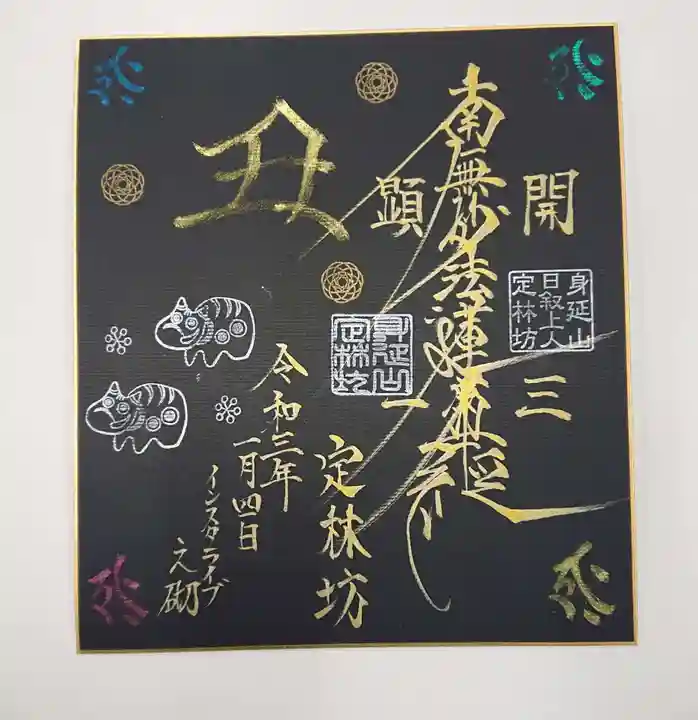 開
三
身延山
日叙上人
定林坊
南無妙法蓮華経
顕
一
身延山
定林坊
定林坊
丑
令和三年
一月四日
インスタライブ
之砌